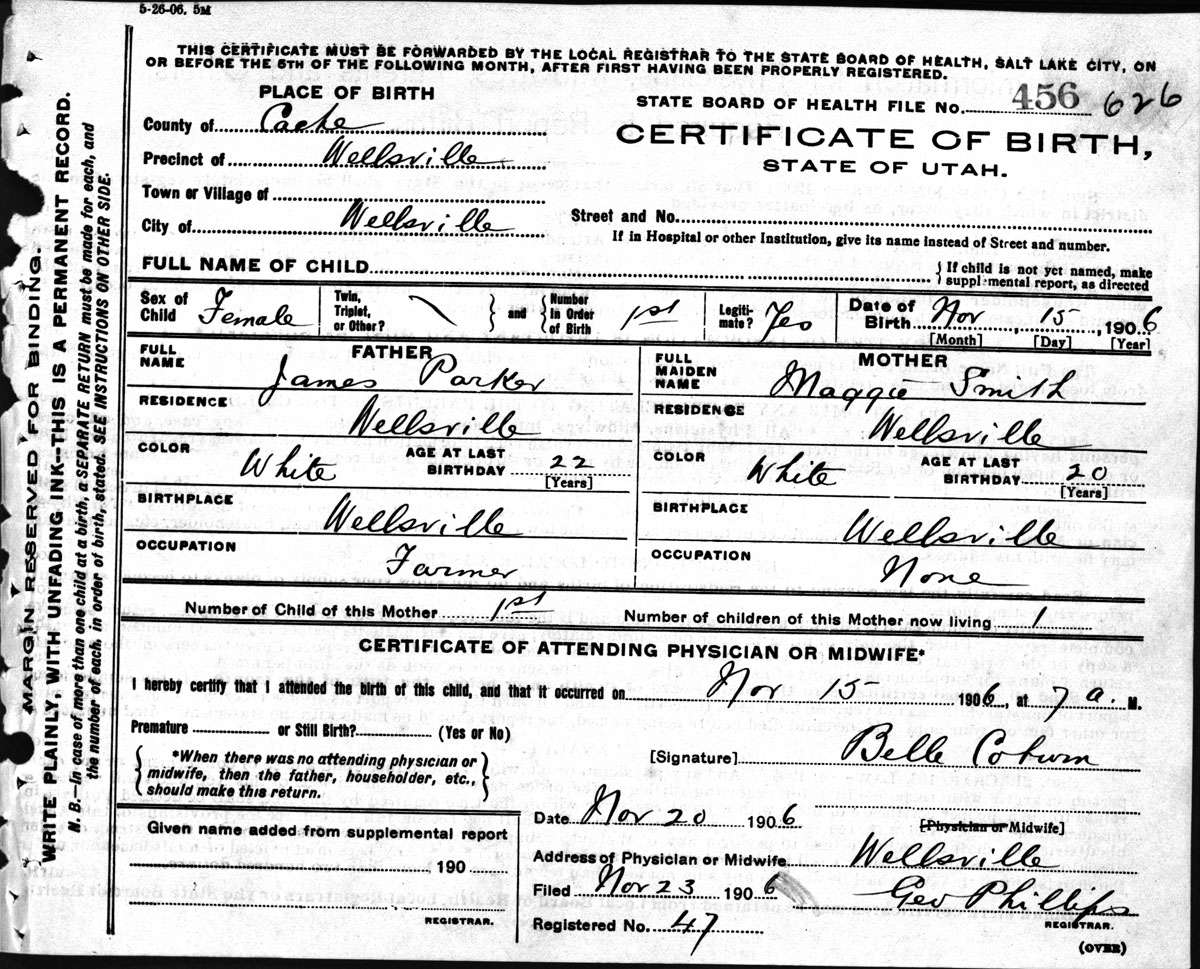 5-26-06. 5M
THIS CERTIFICATE MUST BE FORWARDED BY THE LOCAL REGISTRAR TO THE STATE BOARD OF HEALTH, SALT LAKE CITY, ON
OR BEFORE THE 5TH OF THE FOLLOWING MONTH, AFTER FIRST HAVING BEEN PROPERLY REGISTERED.
MARGIN RESERVED FOR BINDING.
WRITE PLAINLY WITH UNFADING INK-THIS IS A PERMANENT RECORD.
N. B.—In case of more than one child at a birth, a SEPARATE RETURN must be made for each, and
the number of each, in order of birth, stated. SEE INSTRUCTIONS ON OTHER SIDE.
PLACE OF BIRTH
County of Cache
Precinct of Wellsville
Town or Village of
City of Wellsville
STATE BOARD OF HEALTH FILE No. 456 626
CERTIFICATE OF BIRTH,
STATE OF UTAH.
Street and No.
If in Hospital or other Institution, give its name instead of Street and number.
FULL NAME OF CHILD { If child is not yet named, make
supplemental report, as directed
Sex of Child Female
Twin, Triplet, or Other? } and { Number In Order of Birth 1st
Legitimate? Yes
Date of Birth Nov, 15, 1906
[Month] [Day] [Year]
FATHER
FULL NAME James Parker
RESIDENCE Wellsville
COLOR White AGE AT LAST BIRTHDAY 22
[Years]
BIRTHPLACE Wellsville
OCCUPATION Farmer
MOTHER
FULL MAIDEN NAME Maggie Smith
RESIDENCE Wellsville
COLOR White AGE AT LAST BIRTHDAY 20
[Years]
BIRTHPLACE Wellsville
OCCUPATION None
Number of Child of this Mother 1st Number of children of this Mother now living 1
CERTIFICATE OF ATTENDING PHYSICIAN OR MIDWIFE*
I hereby certify that I attended the birth of this child, and that it occurred on Nov 15 1906, at 7 a. M.
Premature or Still Birth? (Yes or No)
{ *When there was no attending physician or
midwife, then the father, householder, etc.,
should make this return. }
[Signature] Belle
Date Nov 20 1906
[Physician or Midwife]
Address of Physician or Midwife Wellsville
Filed Nov 23 1906 Geo Phillips
REGISTRAR.
Registered No. 47
(OVER)
Given name added from supplemental report
190
REGISTRAR.